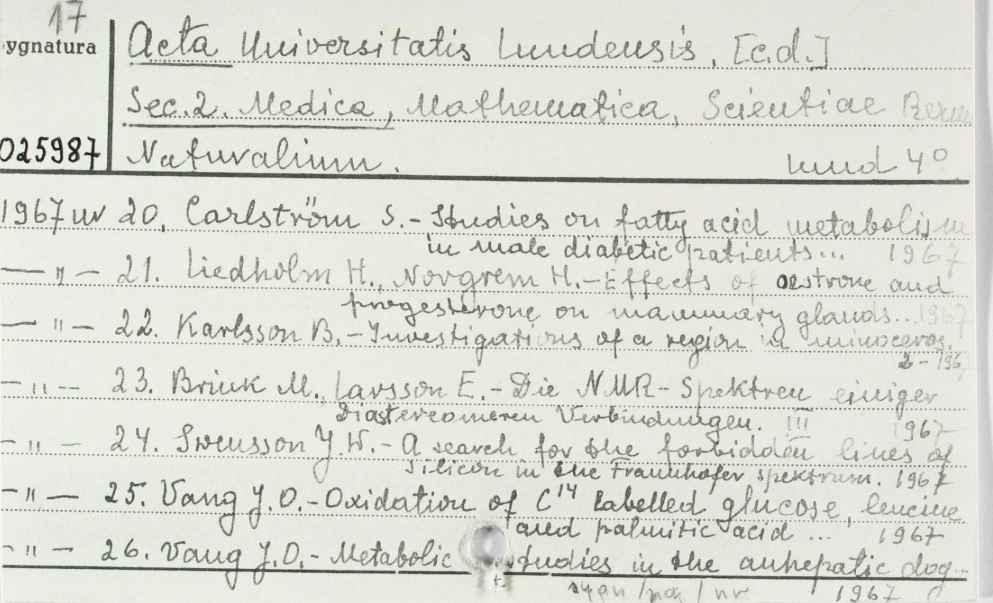 17
ygnatura
Acta Universitatis Lundensis, [c.d.]
Sec. 2. Medica, Mathematica, Scientiae Rerum
025987 Naturalium. Lund 4°
1967 nr 20. Carlström S. - Studies on fatty acid metabolism
in male diabetic patients... 1967
— " — 21. Liedholm H., Norgrem H. - Effects of oestrone and
progesterone on mammary glands... 1967
— " — 22. Karlsson B. - Investigations of a region in
2 - 196
— " — 23. Brink M., Larsson E. - Die NMR - Spektren einiger
Diastereomeren Verbindungen. III 1967
— " — 24. Swensson J.W. - A search for the forbidden lines of
silicon in the Fraunhofer spektrum. 1967
— " — 25. Vang J.O. - Oxidation of C¹⁴ labelled glucose, leucine
and palmitic acid ... 1967
— " — 26. Vang J.O. - Metabolic studies in the anhepatic dog...
1967